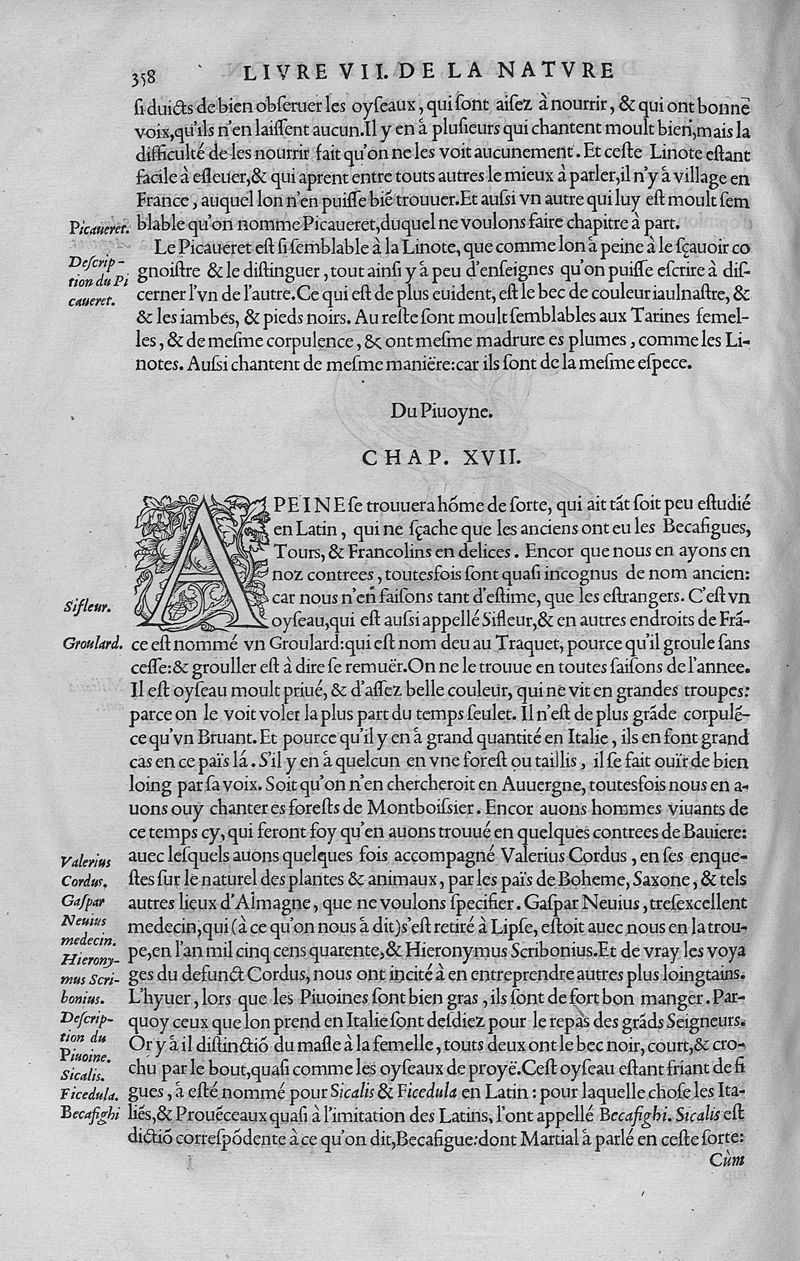 358 LIVRE VII. DE LA NATVRE
ſi duicts de bien obſeruer les oyſeaux, qui ſont aiſez à nourrir, & qui ont bonne
voix, qu'ils n'en laiſſent aucun. Il y en à pluſieurs qui chantent moult bien, mais la
difficulté de les nourrir fait qu'on ne les voit aucunement. Et ceſte Linote eſtant
facile à eſleuer, & qui aprent entre touts autres le mieux à parler, il n'y à village en
France, auquel lon n'en puiſſe biē trouuer. Et auſsi vn autre qui luy eſt moult ſem
Picaueret. blable qu'on nomme Picaueret, duquel ne voulons faire chapitre à part.
Le Picaueret eſt ſi ſemblable à la Linote, que comme lon à peine à le ſçauoir co
Deſcrip-
tion du Pi
caueret.
gnoiſtre & le diſtinguer, tout ainſi y à peu d'enſeignes qu'on puiſſe eſcrire à diſ-
cerner l'vn de l'autre. Ce qui eſt de plus euident, eſt le bec de couleur iaulnaſtre, &
& les iambes, & pieds noirs. Au reſte ſont moult ſemblables aux Tarines femel-
les, & de meſme corpulence, & ont meſme madrure es plumes, comme les Li-
notes. Auſsi chantent de meſme maniëre: car ils ſont de la meſme eſpece.
Du Piuoyne.
CHAP. XVII.
A PEINE ſe trouuera hōme de ſorte, qui ait tāt ſoit peu eſtudié
en Latin, qui ne ſçache que les anciens ont eu les Becafigues,
Tours, & Francolins en delices. Encor que nous en ayons en
noz contrees, toutesfois ſont quaſi incognus de nom ancien:
car nous n'en faiſons tant d'eſtime, que les eſtrangers. C'eſt vn
Sifleur. oyſeau, qui eſt auſsi appellé Sifleur, & en autres endroits de Frā-
Groulard. ce eſt nommé vn Groulard: qui eſt nom deu au Traquet, pource qu'il groule ſans
ceſſe: & grouller eſt à dire ſe remuër. On ne le trouue en toutes ſaiſons de l'annee.
Il eſt oyſeau moult priué, & d'aſſez belle couleur, qui ne vit en grandes troupes:
parce on le voit voler la plus part du temps ſeulet. Il n'eſt de plus grāde corpulē-
ce qu'vn Bruant. Et pource qu'il y en à grand quantité en Italie, ils en font grand
cas en ce païs lá. S'il y en à quelcun en vne foreſt ou taillis, il ſe fait ouïr de bien
loing par ſa voix. Soit qu'on n'en chercheroit en Auuergne, toutesfois nous en a-
uons ouy chanter es foreſts de Montboiſsier. Encor auons hommes viuants de
ce temps cy, qui feront foy qu'en auons trouué en quelques contrees de Bauiere:
avec leſquels auons quelques fois accompagné Valerius Cordus, en ſes enque-
ſtes ſur le naturel des plantes & animaux, par les païs de Boheme, Saxone, & tels
autres lieux d'Almagne, que ne voulons ſpecifier. Gaſpar Neuius, treſexcellent
medecin, qui (à ce qu'on nous à dit) s'eſt retiré à Lipſe, eſtoit auec nous en la trou-
pe, en l'an mil cinq cens quarente, & Hieronymus Scribonius. Et de vray les voya
ges du defunct Cordus, nous ont incité à en entreprendre autres plus loingtains.
L'hyuer, lors que les Piuoines ſont bien gras, ils ſont de fort bon manger. Par-
quoy ceux que lon prend en Italie ſont deſdiez pour le repas des grāds Seigneurs.
Valerius
Cordus.
Gaſpar
Neuius
medecin.
Hierony-
mus Scri-
bonius.
Deſcrip-
tion du
Piuoine.
Sicalis.
Ficedula.
Becafighi
Or y à il diſtinctiō du maſle à la femelle, touts deux ont le bec noir, court, & cro-
chu par le bout, quaſi comme les oyſeaux de proyë. Ceſt oyſeau eſtant friant de fi
gues, à eſté nommé pour Sicalis & Ficedula en Latin: pour laquelle choſe les Ita-
liēs, & Prouēceaux quaſi à l'imitation des Latins, l'ont appellé Becafighi. Sicalis eſt
dictiō correſpōdente à ce qu'on dit, Becafigue: dont Martial à parlé en ceſte ſorte:
Cùm